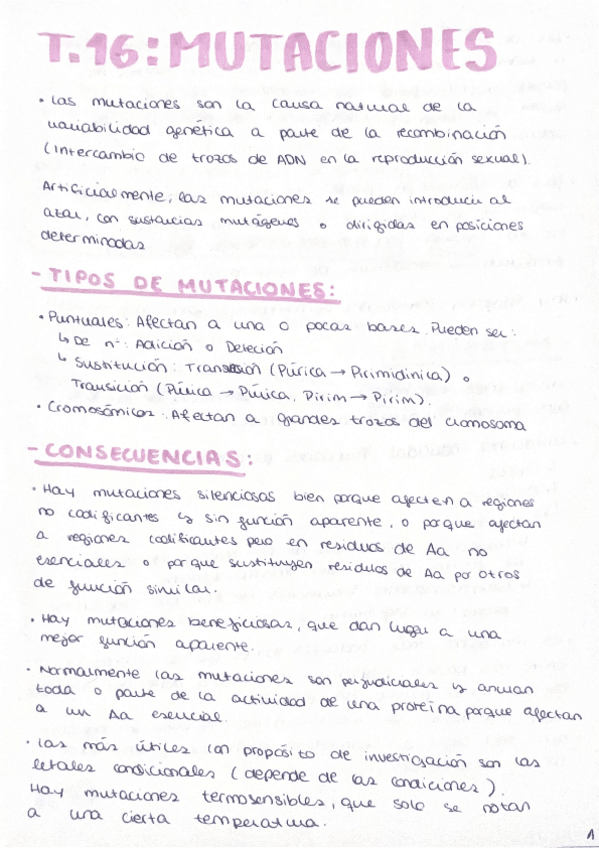 T.16: MUTACIONES
• Las mutaciones son la causa natural de la
variabilidad genética a parte de la recombinación
(Intercambio de trozos de ADN en la reproducción sexual).
Artificialmente, las mutaciones se pueden introducir al
azar, con sustancias mutágenos o dirigidas en posiciones
determinadas
- TIPOS DE MUTACIONES:
• Puntuales: Afectan a una o pocas bases. Pueden ser:
↳ De nº: Adición o Deleción
↳ Sustitución: Transversión (Púrica → Pirimidínica) o
Transición (Púrica → Púrica, Pirim → Pirim).
• Cromosómicos: Afectan a grandes trozos del cromosoma
- CONSECUENCIAS:
• Hay mutaciones silenciosas bien porque afecten a regiones
no codificantes y sin función aparente, o porque afectan
a regiones codificantes pero en residuos de Aa no
esenciales o porque sustituyen residuos de Aa por otros
de función similar.
• Hay mutaciones beneficiosas, que dan lugar a una
mejor función aparente.
• Normalmente las mutaciones son perjudiciales y anulan
toda o parte de la actividad de una proteína porque afectan
a un Aa esencial.
• Las más útiles con propósito de investigación son las
letales condicionales (depende de las condiciones).
Hay mutaciones termosensibles, que solo se notan
a una cierta temperatura.
1